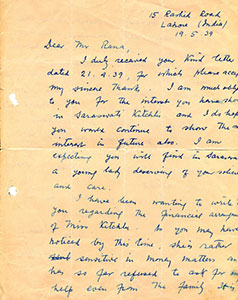 15 Rashid Road
Lahore (India)
19.5.39
Dear Mr Rana,
I duly received your kind letter
dated 21.4.39, for which please accept
my sincere thanks. I am much obliged
to you for the interest you have shown
in Saraswati Kitchlu and I do hope
you would continue to show the
interest in future also. I am
expecting you will find in
a young lady deserving of you
and care.
I have been wanting to write
you regarding the financial
of Miss Kitchlu. As you may have
noticed by this time, she is rather
sensitive in money matters an
has so far refused to ask for
help even from the family It is